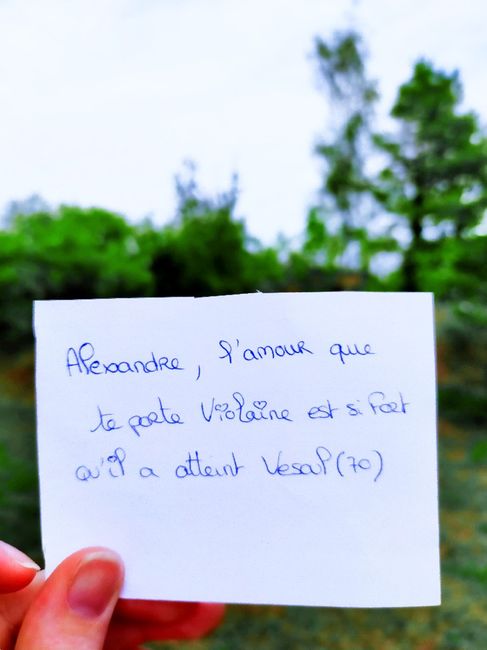 Alexandre, l'amour que
te porte Violaine est si fort
qu'il a atteint Vesoul (70)